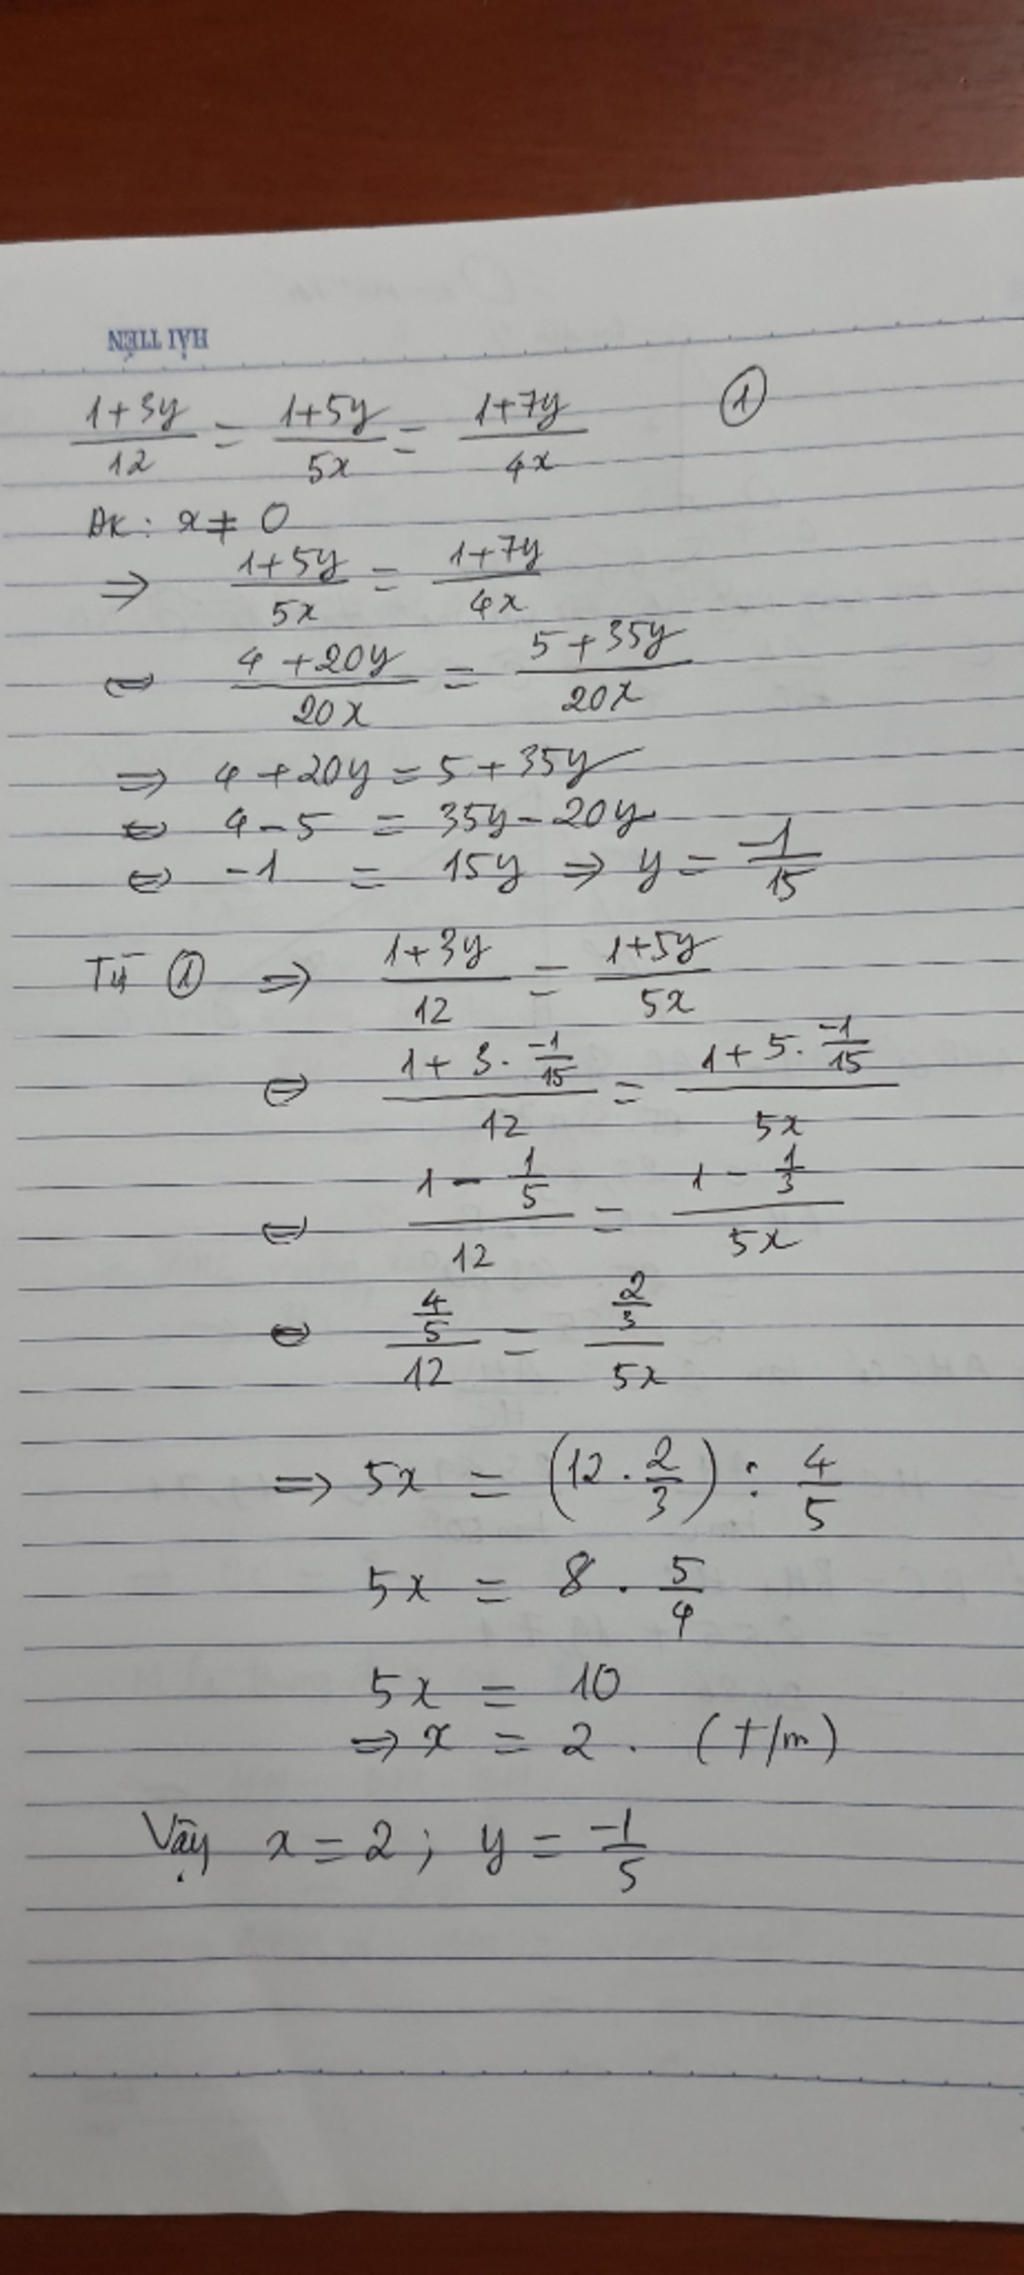 HẢI TIẾN
(1+3y)/12 = (1+5y)/5x = (1+7y)/4x ①
ĐK: x ≠ 0
⇒ (1+5y)/5x = (1+7y)/4x
⇔ (4+20y)/20x = (5+35y)/20x
⇒ 4+20y = 5+35y
⇔ 4-5 = 35y-20y
⇔ -1 = 15y ⇒ y = -1/15
Từ ① ⇒ (1+3y)/12 = (1+5y)/5x
⇔ (1+3·(-1/15))/12 = (1+5·(-1/15))/5x
⇔ (1-1/5)/12 = (1-1/3)/5x
⇔ (4/5)/12 = (2/3)/5x
⇒ 5x = (12·2/3) : 4/5
5x = 8 · 5/4
5x = 10
⇒ x = 2. (T/m)
Vậy x = 2; y = -1/5